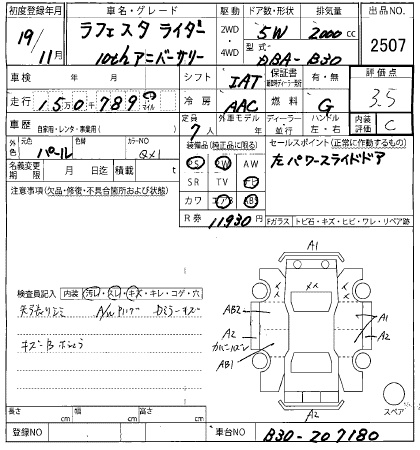 初度登録年月 車名・グレード 駆動 ドア数・形状 排気量 出品NO.
19/11月 ラフェスタ ライダー 10thアニバーサリー 2WD・4WD 5W 2000cc 2507
型式 DBA-B30
車検 年 月 シフト IAT 保証書 有・無 評価点
走行 15万0千789 マイル 冷房 AAC 燃料 G 3.5
車歴 自家用・レンタ・事業用( ) 定員 7人 外車モデル年 ディーラー 並行 ハンドル 左・右 内装評価 C
外色 元色 パール 色替 カラーNO QX1 装備品(純正品に限る) セールスポイント(正常に作動するもの)
名義変更期限 月 日迄 積載 t PS PW AW 左パワースライドドア
注意事項(欠品・修復・不具合箇所および状態) SR TV ナビ
カワ エアB ABS
R券 11930円 Fガラス トビ石・キズ・ヒビ・ワレ・リペア跡
検査員記入 内装 汚レ・スレ・キズ・キレ・コゲ・穴
A1
AB2
A1
A2
A2
AB1
A2
スペア
長さ cm 幅 cm 高さ cm
登録NO 車台NO B30-207180